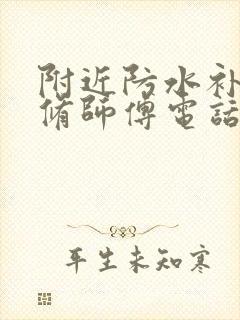 附近防水补
脩師傅電話
平生未知寒